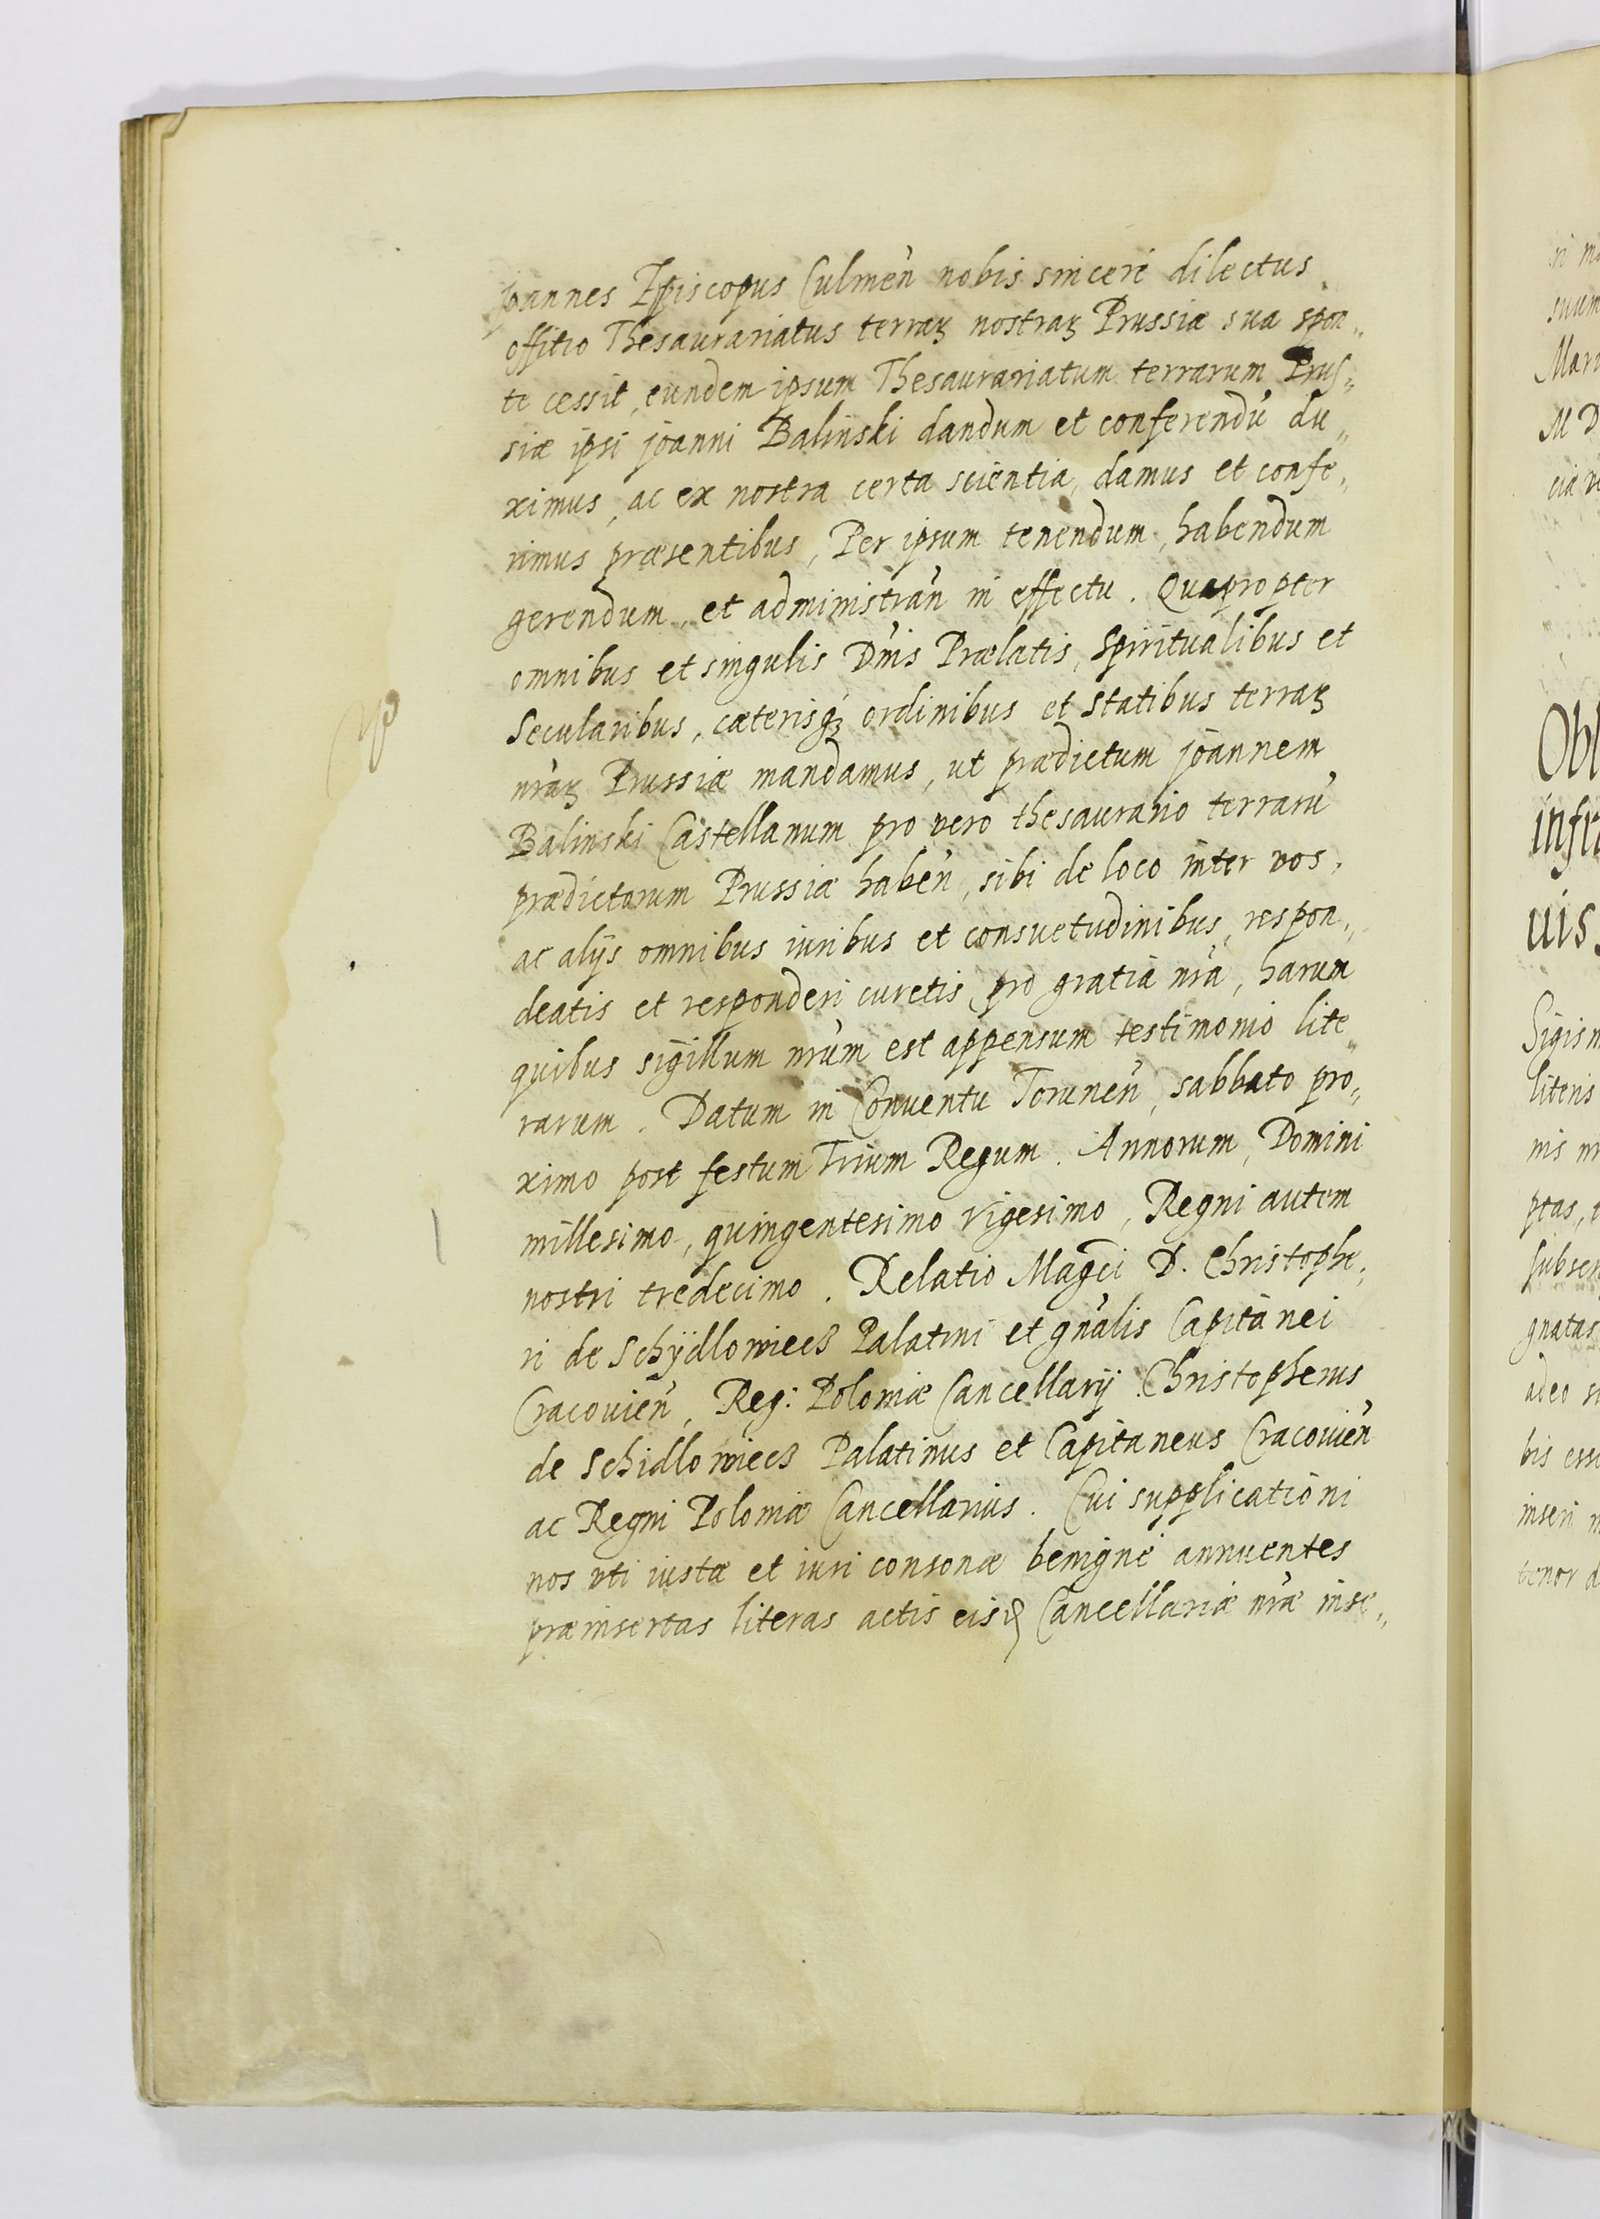 Joannes Episcopus Culmeń nobis sinceré dilectus
offitio Thesaurariatus terraꝝ nostraꝝ Prussiæ sua spon„
te cessit, eundem ipsum Thesaurariatum terrarum Prus„
siæ ipsi joanni Balinski dandum et conferendú du„
ximus, ac ex nostra certa scientia, damus et confe„
rimus præsentibus, Per ipsum tenendum, habendum
gerendum, et administrań in effectu. Quapropter
omnibus et singulis Dńis Prælatis, Spiritualibus et
Secularibus, cæterisqꝫ ordinibus et statibus terraꝝ
nŕaꝝ Prussiæ mandamus, ut prædictum joannem
Balinski Castellanum pro vero thesaurario terrarú
prædictarum Prussiæ habeń, sibi de loco inter vos,
ac alijs omnibus iuribus et consuetudinibus, respon„
deatis et responderi curetis pro gratia nŕa, harum
quibus sigillum nŕum est appensum testimonio lite„
rarum. Datum in Conuentu Toruneń, sabbato pro„
ximo post festum Trium Regum. Annorum, Domini
millesimo, quingentesimo vigesimo, Regni autem
nostri tredecimo. Relatio Magci D. Christophe„
ri de Schÿdlowiecz Palatini et gńalis Capitanei
Cracouień, Reg: Poloniæ Cancellarij. Christopherus
de Schidlowiecz Palatinus et Capitaneus Cracouień
ac Regni Poloniæ Cancellarius. Cui supplicationi
nos vti iustæ et iuri consonæ benigné annuentes
præinsertas literas actis eisd Cancellariæ nŕæ inse„
Obl
infra
uis,
Sigism
literis
nis nr
ptas,
subscr
gnatas
adeo
bis esse
inseri
tenor d
suum
Mari
M D